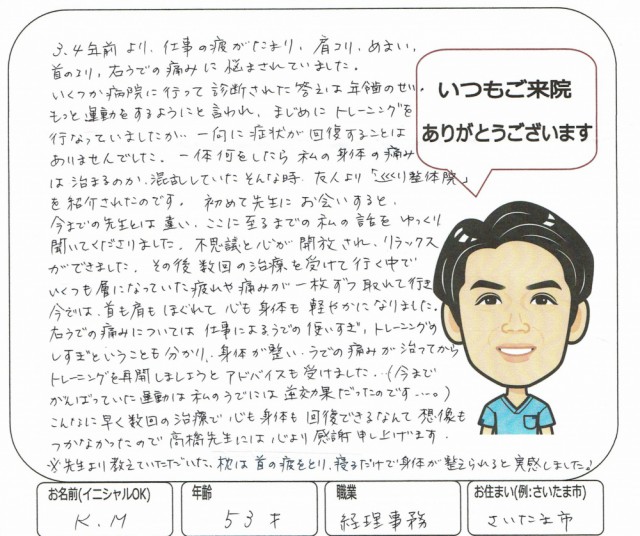 3、4年前より、仕事の疲がたまり、肩コリ、めまい、
首のコリ、右うでの痛みに悩まされていました。
いくつか病院に行って診断された答えは年齢のせい。
もっと運動をするようにと言われ、まじめにトレーニングを
行なっていましたが…一向に症状が回復することは
ありませんでした。一体何をしたら私の身体の痛み
は治まるのか、混乱していたそんな時、友人より「巡り整体院」
を紹介されたのです。初めて先生にお会いすると、
今までの先生とは違い、ここに至るまでの私の話をゆっくり
聞いてくださりました。不思議と心が開放され、リラックス
ができました。その後数回の治療を受けて行く中で
いくつも層になっていた疲れや痛みが一枚ずつ取れて行き
今では、首も肩もほぐれて心も身体も軽やかになりました。
右うでの痛みについては仕事によるうでの使いすぎ、トレーニングの
しすぎということも分かり、身体が整い、うでの痛みが治ってから
トレーニングを再開しましょうとアドバイスも受けました…(今まで
がんばっていた運動は私のうでには逆効果だったのです…。)
こんなに早く数回の治療で心も身体も回復できるなんて想像も
つかなかったので高橋先生には心より感謝申し上げます。
※先生より教えていただいた、枕は首の疲をとり、寝るだけで身体が整えられると実感しました♪
いつもご来院
ありがとうございます
お名前(イニシャルOK)
K.M
年齢
53才
職業
経理事務
お住まい(例:さいたま市)
さいたま市